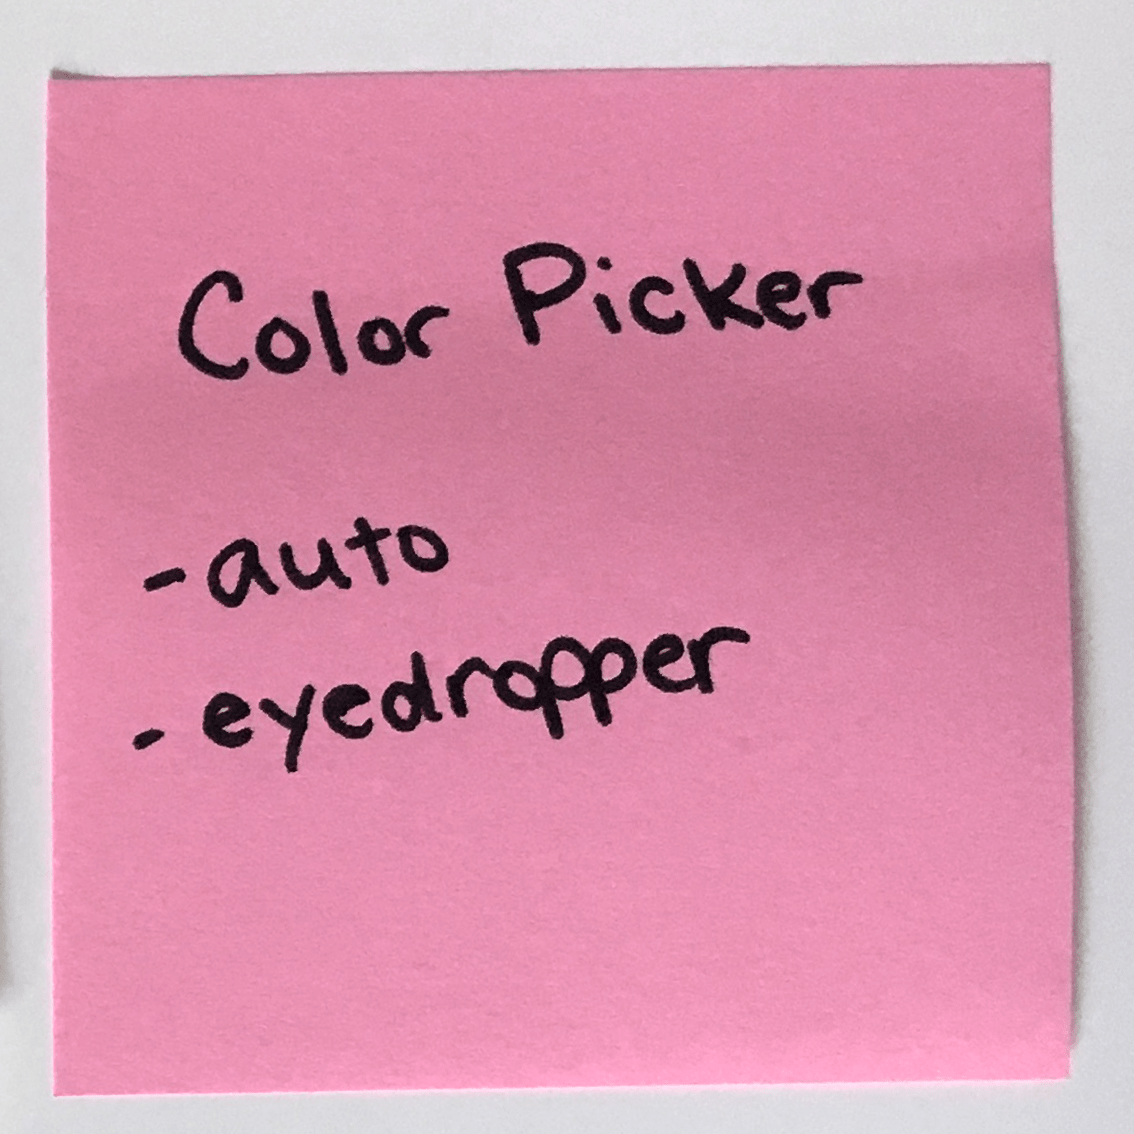 Color Picker
- auto
- eyedropper